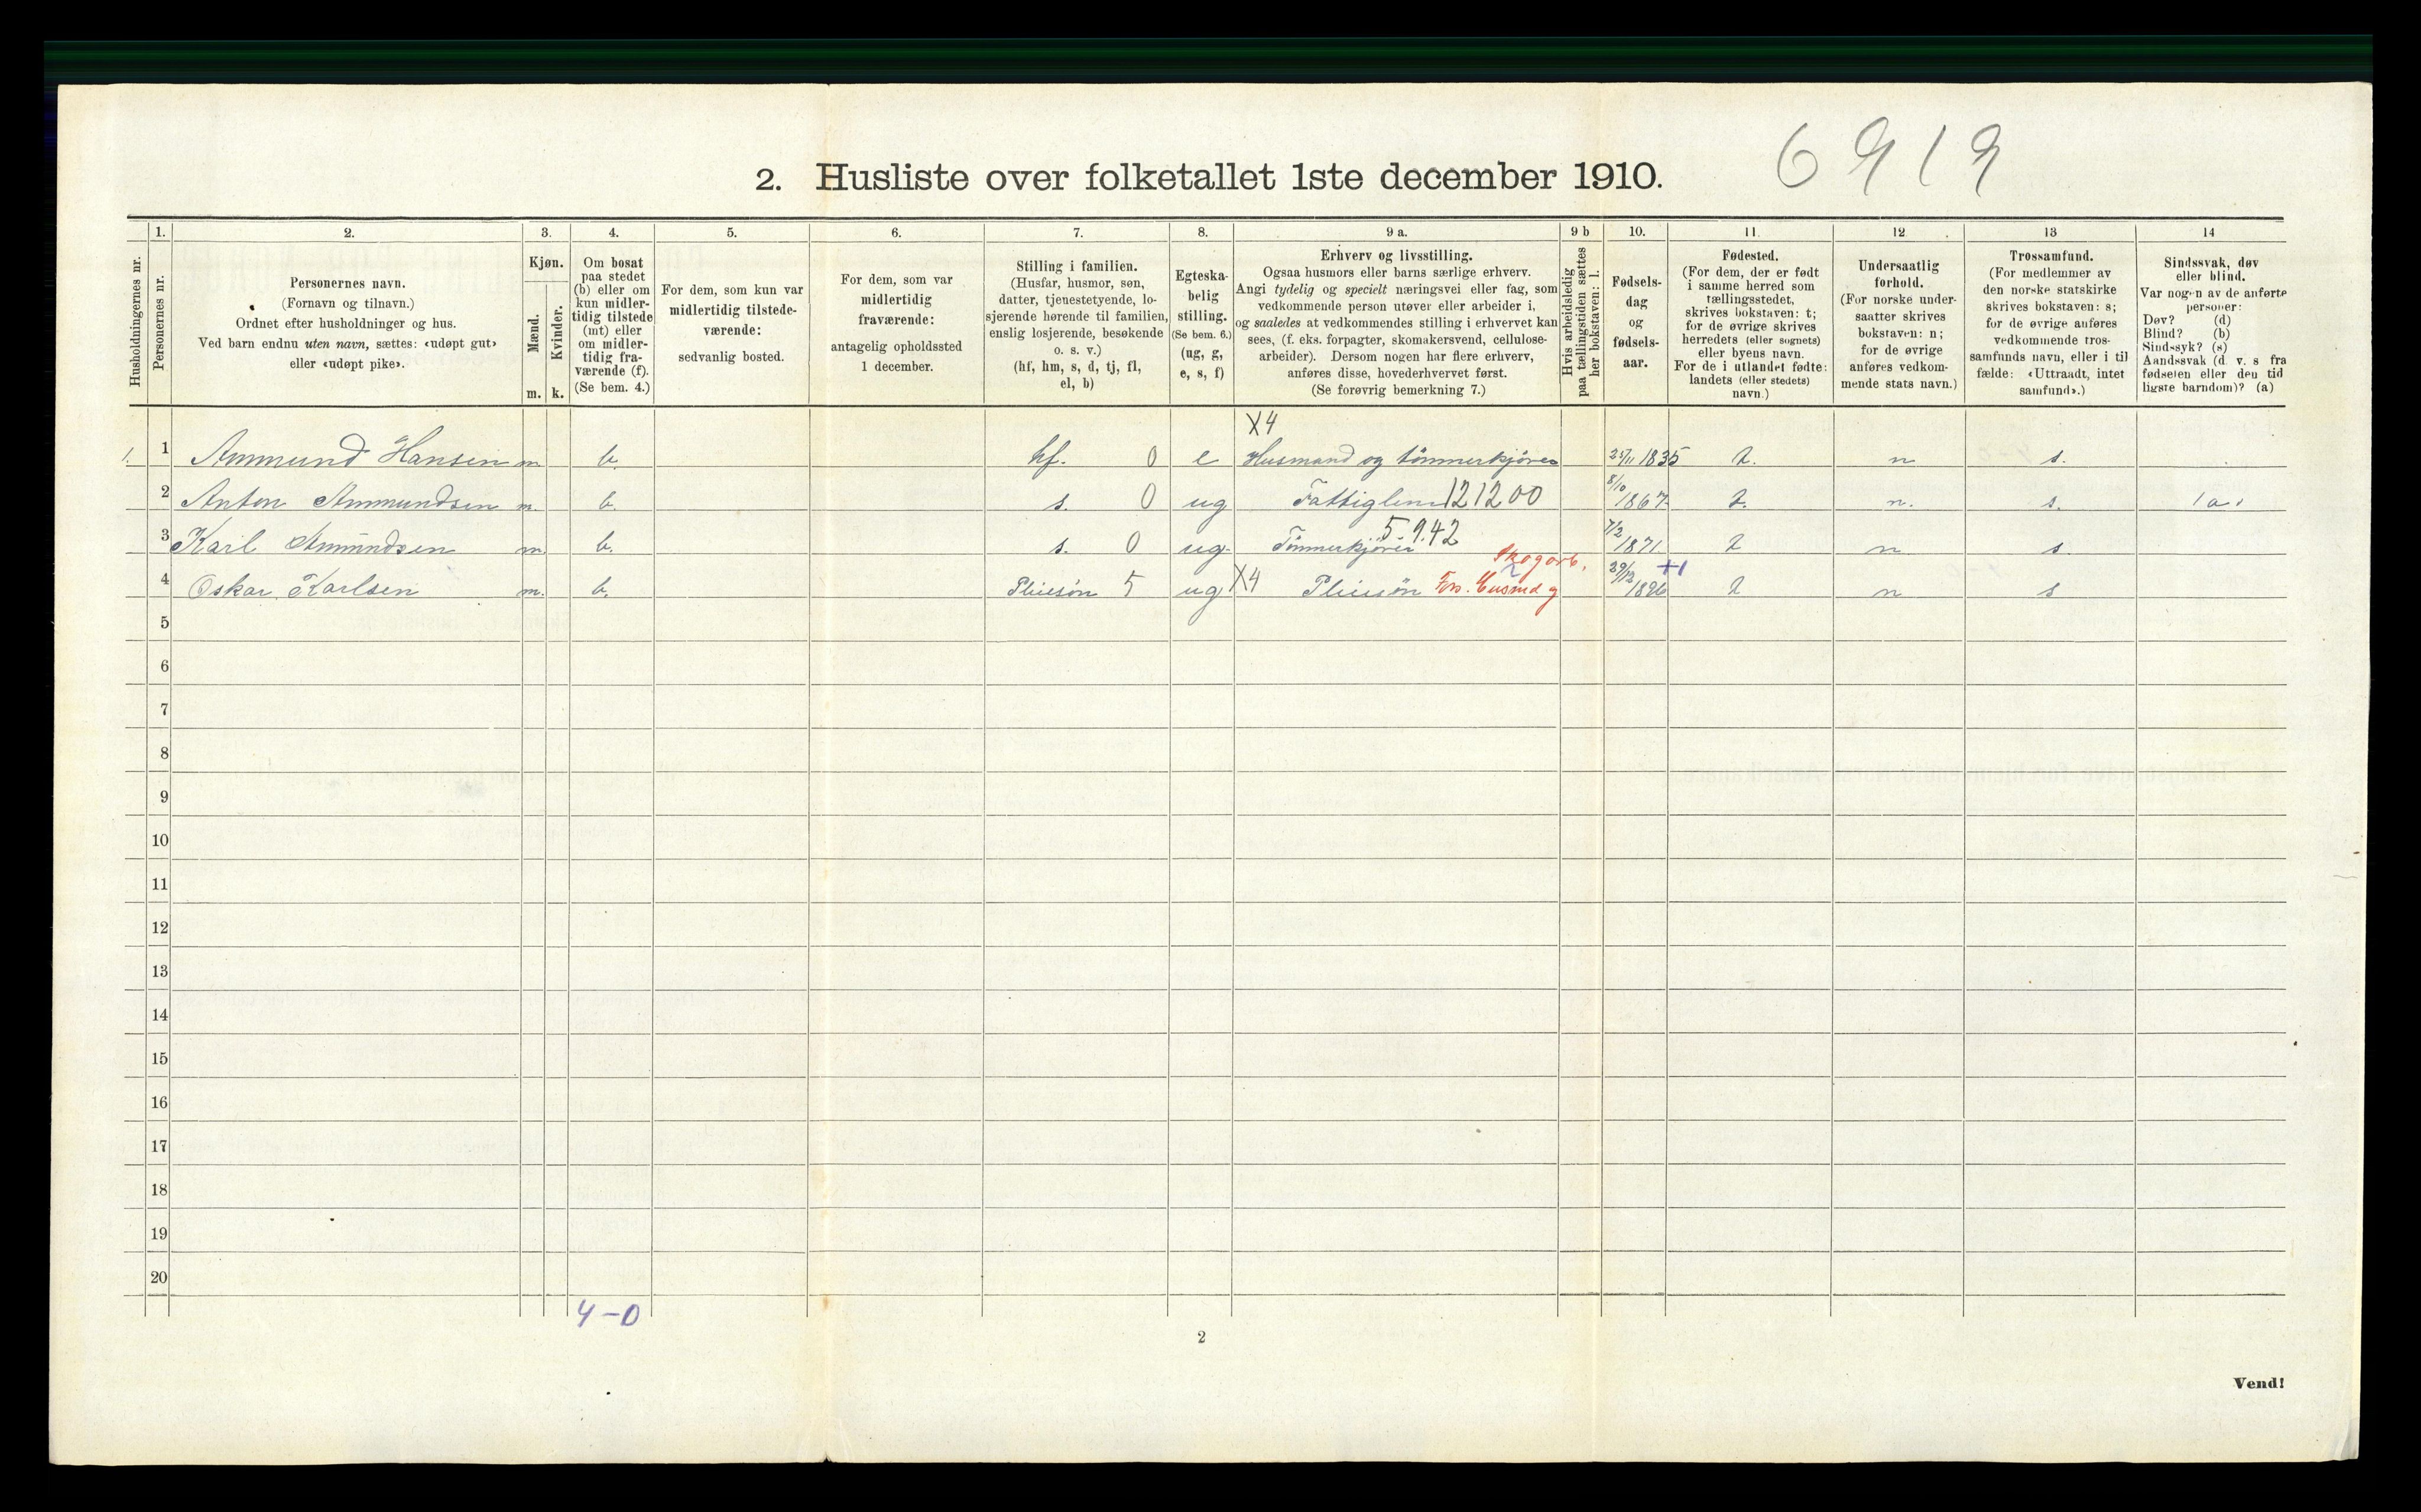 6919
2. Husliste over folketallet 1ste december 1910.
Husholdningernes nr.
1.
Personernes nr.
2.
Personernes navn.
(Fornavn og tilnavn.)
Ordnet efter husholdninger og hus.
Ved barn endnu uten navn, sættes: «udøpt gut»
eller «udøpt pike».
3.
Kjøn.
Mænd.
Kvinder.
m. k.
4.
Om bosat
paa stedet
(b) eller om
kun midler-
tidig tilstede
(mt) eller
om midler-
tidig fra-
værende (f).
(Se bem. 4.)
5.
For dem, som kun var
midlertidig tilstede-
værende:
sedvanlig bosted.
6.
For dem, som var
midlertidig
fraværende:
antagelig opholdssted
1 december.
7.
Stilling i familien.
(Husfar, husmor, søn,
datter, tjenestetyende, lo-
sjerende hørende til familien,
enslig losjerende, besøkende
o. s. v.)
(hf, hm, s, d, tj, fl,
el, b)
8.
Egteska-
belig
stilling.
(Se bem. 6.)
(ug, g,
e, s, f)
9 a.
Erhverv og livsstilling.
Ogsaa husmors eller barns særlige erhverv.
Angi tydelig og specielt næringsvei eller fag, som
vedkommende person utøver eller arbeider i,
og saaledes at vedkommendes stilling i erhvervet kan
sees, (f. eks. forpagter, skomakersvend, cellulose-
arbeider). Dersom nogen har flere erhverv,
anføres disse, hovederhvervet først.
(Se forøvrig bemerkning 7.)
9 b
Hvis arbeidsledig
paa tællingstiden sættes
her bokstaven: l.
10.
Fødsels-
dag
og
fødsels-
aar.
11.
Fødested.
(For dem, der er født
i samme herred som
tællingsstedet,
skrives bokstaven: t;
for de øvrige skrives
herredets (eller sognets)
eller byens navn.
For de i utlandet fødte:
landets (eller stedets)
navn.)
12
Undersaatlig
forhold.
(For norske under-
saatter skrives
bokstaven: n;
for de øvrige
anføres vedkom-
mende stats navn.)
13
Trossamfund.
(For medlemmer av
den norske statskirke
skrives bokstaven: s;
for de øvrige anføres
vedkommende tros-
samfunds navn, eller i til
fælde: «Uttraadt, intet
samfund».)
14
Sindssvak, døv
eller blind.
Var nogen av de anførte
personer:
Døv? (d)
Blind? (b)
Sindssyk? (s)
Aandssvak (d. v. s. fra
fødselen eller den tid
ligste barndom)? (a)
X4
1. 1 Ammund Hansen m b. hf. 0 e Husmand og tömmerkjörer 25/11 1835 t. n s.
2 Anton Ammundsen m. b. s. 0 ug Fattiglem 121200 8/10 1867 t. n. s. 1 a.
5942
3 Karl Amundsen m. b. s. 0 ug. Tömmerkjörer 7/2 1871 t n s.
Skogarb. +1
4 Oskar Karlsen m. b. Pleiesön 5 ug X4 Pleiesön Fors. Husmd g 29/12 1896 t n s
5
6
7
8
9
10
11
12
13
14
15
16
17
18
19
20
4-0
2
Vend!